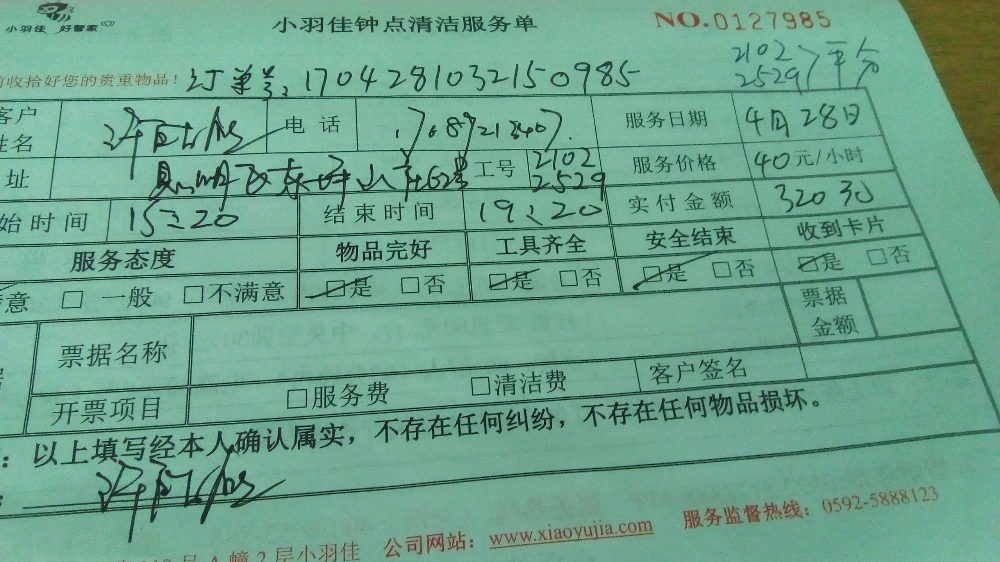 小羽佳 好管家
小羽佳钟点清洁服务单
NO.0127985
前收拾好您的贵重物品! 订单号: 1704281032150985
2102
2529 平分
客户姓名 电话 服务日期 4月28日
址 工号 2102 2529 服务价格 40元/小时
始时间 15:20 结束时间 19:20 实付金额 320元
服务态度 物品完好 工具齐全 安全结束 收到卡片
意 □ 一般 □不满意 □是 □否 □是 □否 □是 □否 □是 □否
票据名称 票据金额
开票项目 □服务费 □清洁费 客户签名
: 以上填写经本人确认属实,不存在任何纠纷,不存在任何物品损坏。
号A幢2层小羽佳 公司网站: www.xiaoyujia.com 服务监督热线: 0592-5888123